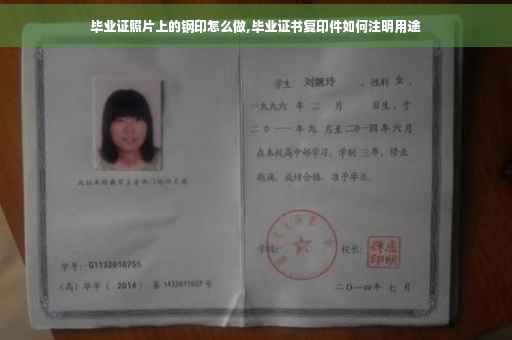 毕业证照片上的钢印怎么做,毕业证书复印件如何注明用途
学生 刘婉玲 ,性别 女 ,
一九九六 年 二 月 日生,于
二〇一一 年 九 月至 二〇一四 年 六 月
在本校高中部学习,学制 三年,修业
期满,成绩合格,准予毕业。
学校: 校长:
学号: G1132010755
(高)毕字( 2014 )第 1432011027 号
二〇一四年 七 月